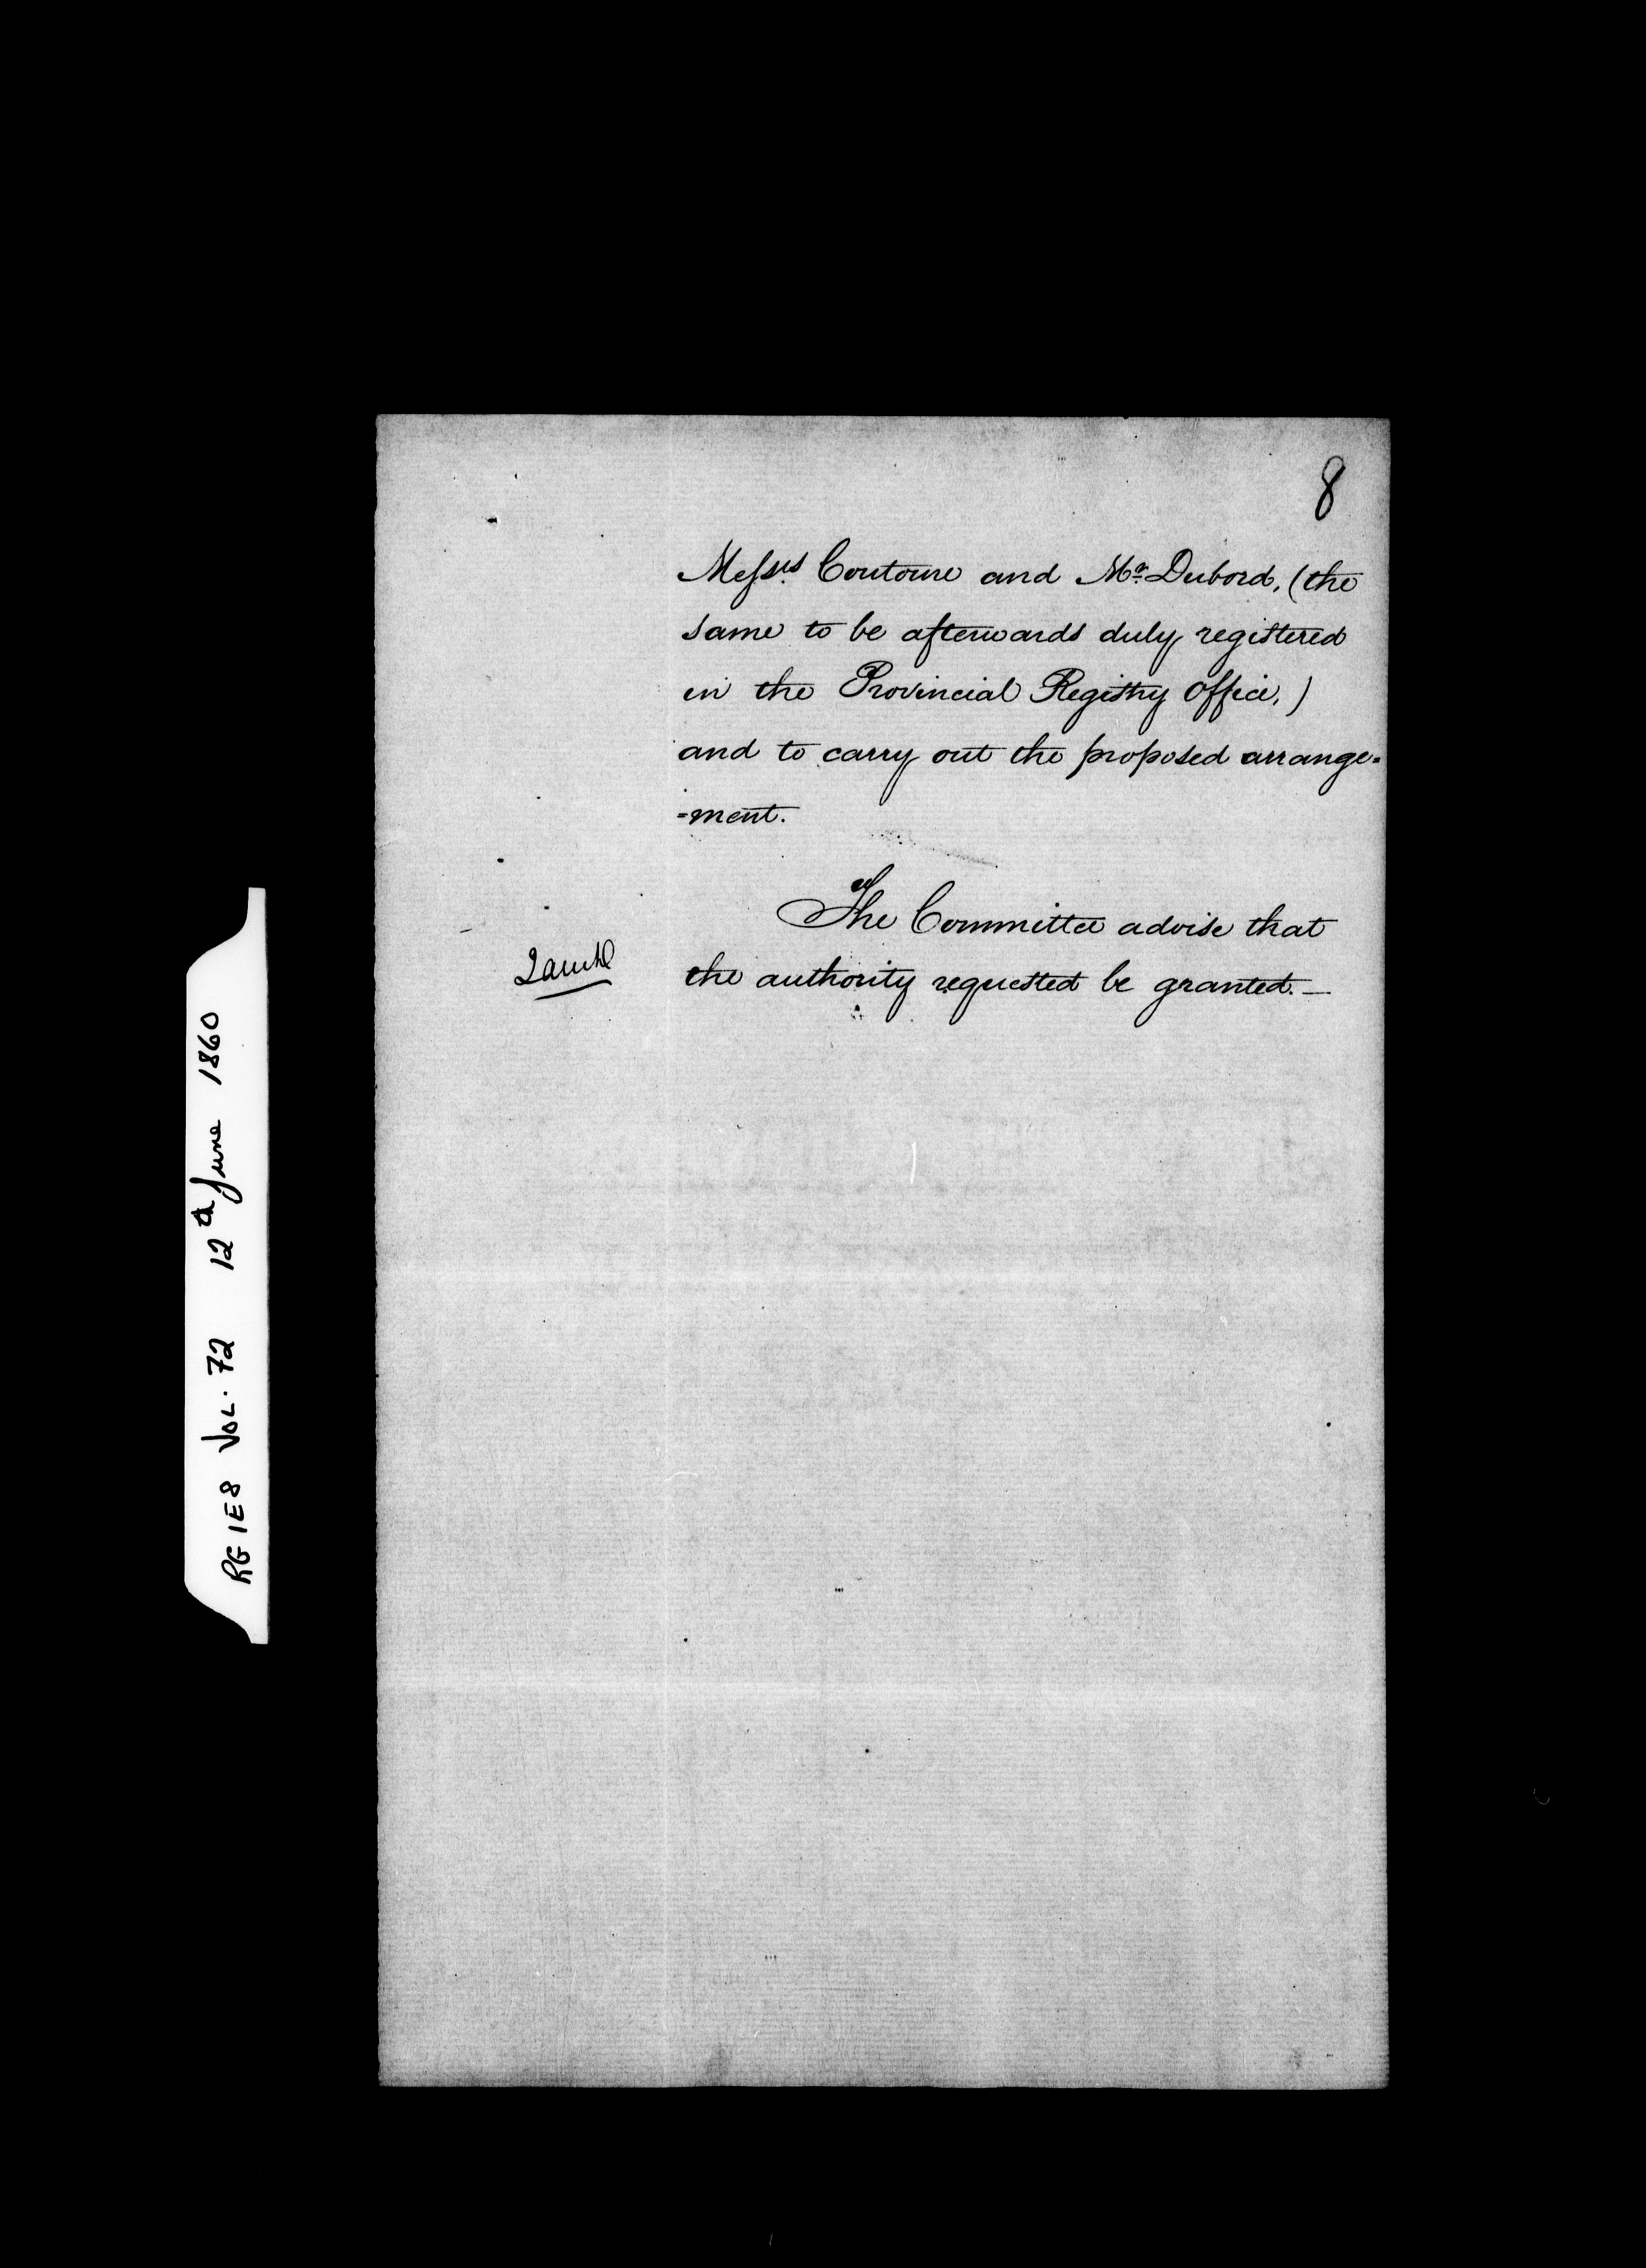 8
Messrs. Coutoure and Mr. Dubord, (the
same to be afterwards duly registered
in the Provincial Registry Office,)
and to carry out the proposed arrange=
=ment.
The Committee advise that
the authority requested be granted. —
RG 1E8 VOL. 72 12th June 1860